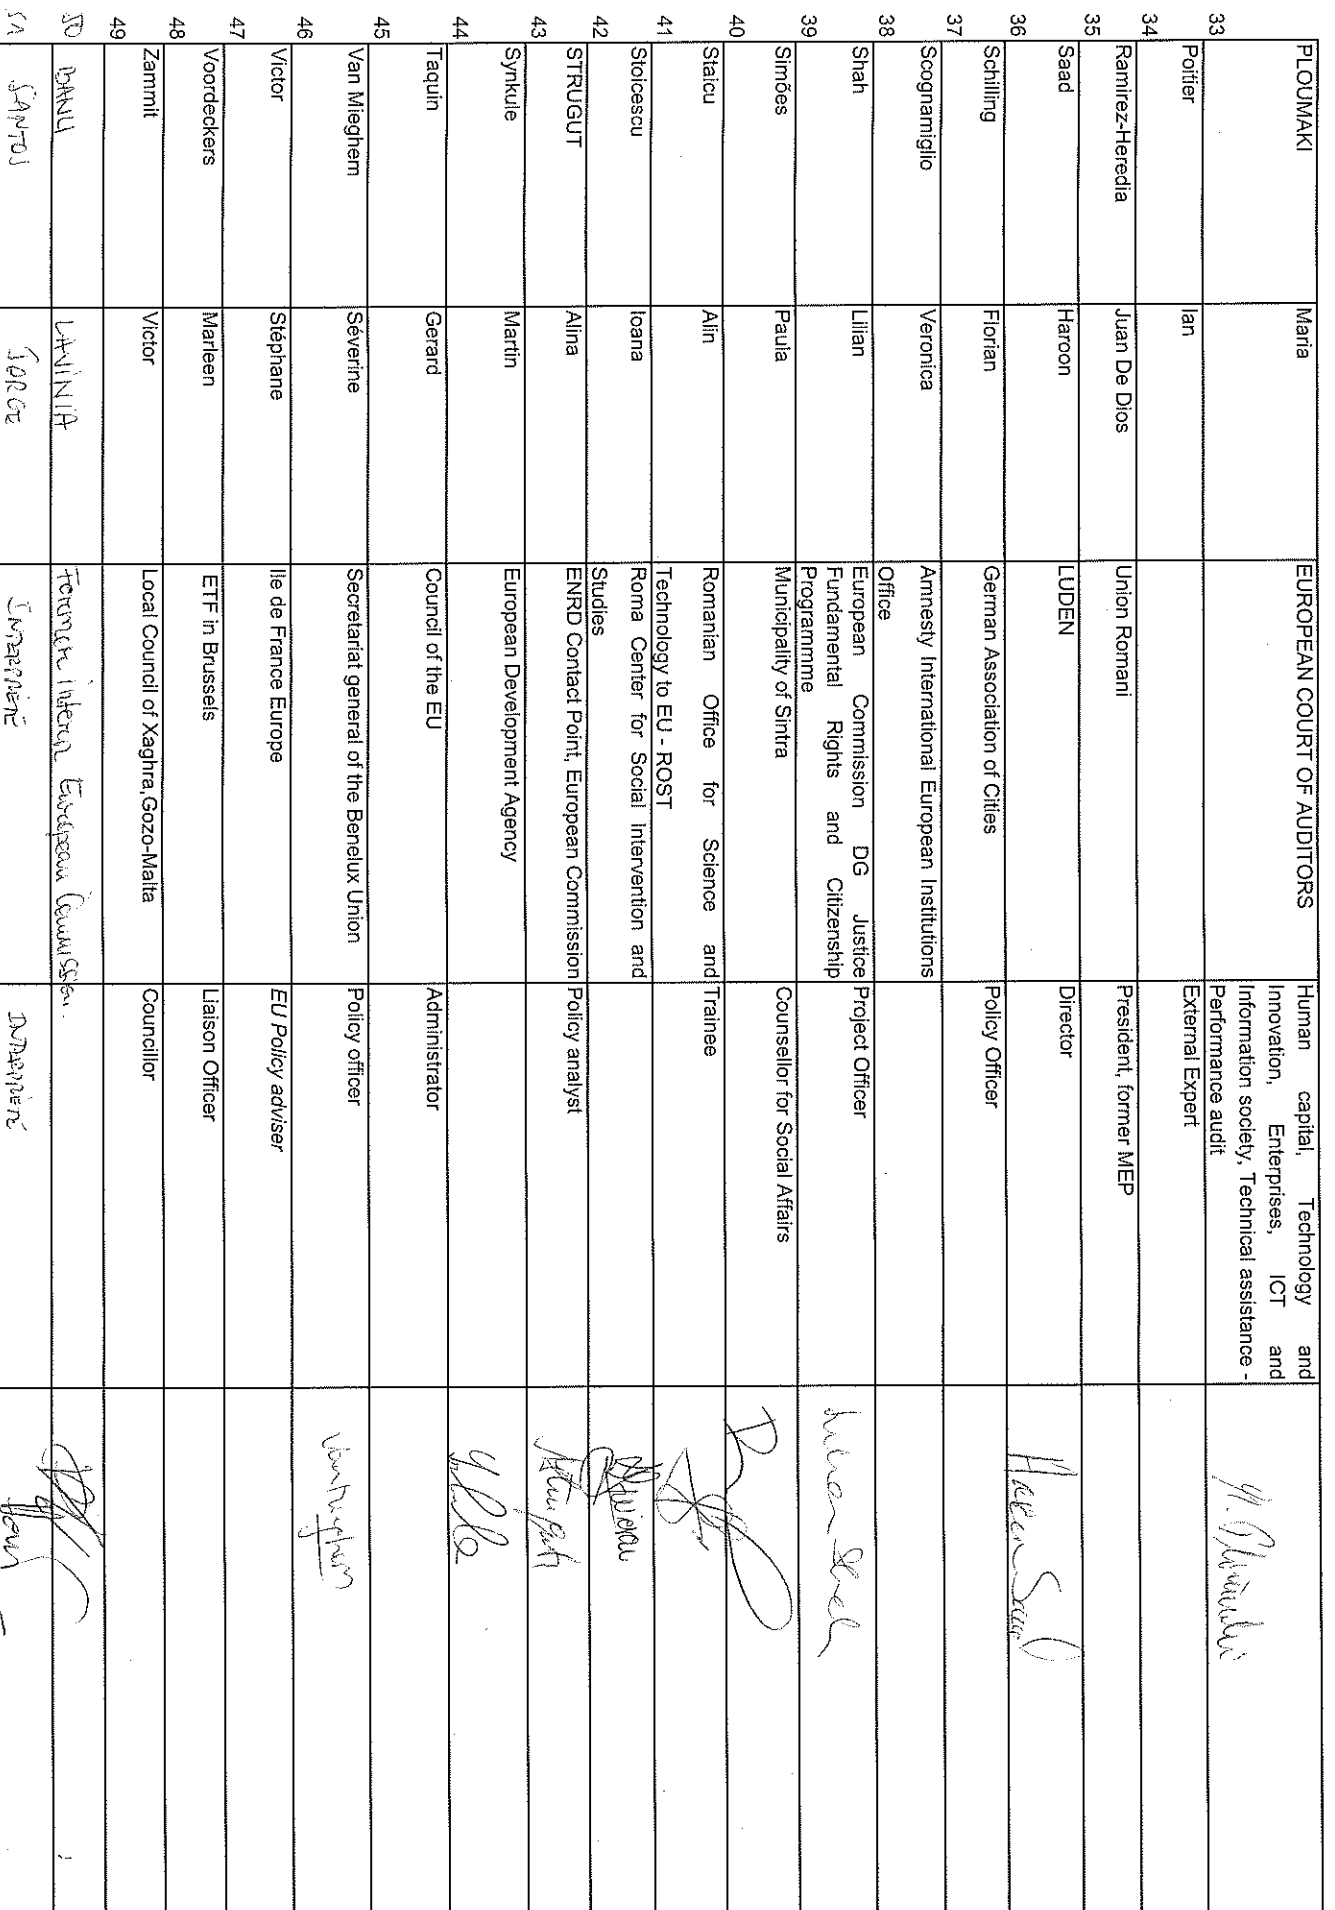 33 PLOUMAKI Maria EUROPEAN COURT OF AUDITORS Human capital, Technology and
Innovation, Enterprises, ICT and
Information society, Technical assistance -
Performance audit
34 Poitier Ian External Expert
35 Ramirez-Heredia Juan De Dios Union Romani President, former MEP
36 Saad Haroon LUDEN Director
37 Schilling Florian German Association of Cities Policy Officer
38 Scognamiglio Veronica Amnesty International European Institutions
Office
39 Shah Lilian European Commission DG Justice Project Officer
Fundamental Rights and Citizenship
Programmme
40 Simões Paula Municipality of Sintra Counsellor for Social Affairs
41 Staicu Alin Romanian Office for Science and Trainee
Technology to EU - ROST
42 Stoicescu Ioana Roma Center for Social Intervention and
Studies
43 STRUGUT Alina ENRD Contact Point, European Commission Policy analyst
44 Synkule Martin European Development Agency
45 Taquin Gerard Council of the EU Administrator
46 Van Mieghem Séverine Secretariat general of the Benelux Union Policy officer
47 Victor Stéphane Ile de France Europe EU Policy adviser
48 Voordeckers Marleen ETF in Brussels Liaison Officer
49 Zammit Victor Local Council of Xaghra,Gozo-Malta Councillor
50 BANU LAVINIA intern European Commission.
51 SANTOS JORGE INTERPRETE INTERPRETE